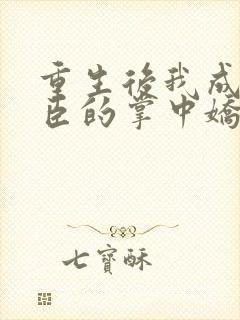 重生後我成
臣的掌中嬌
七寶酥